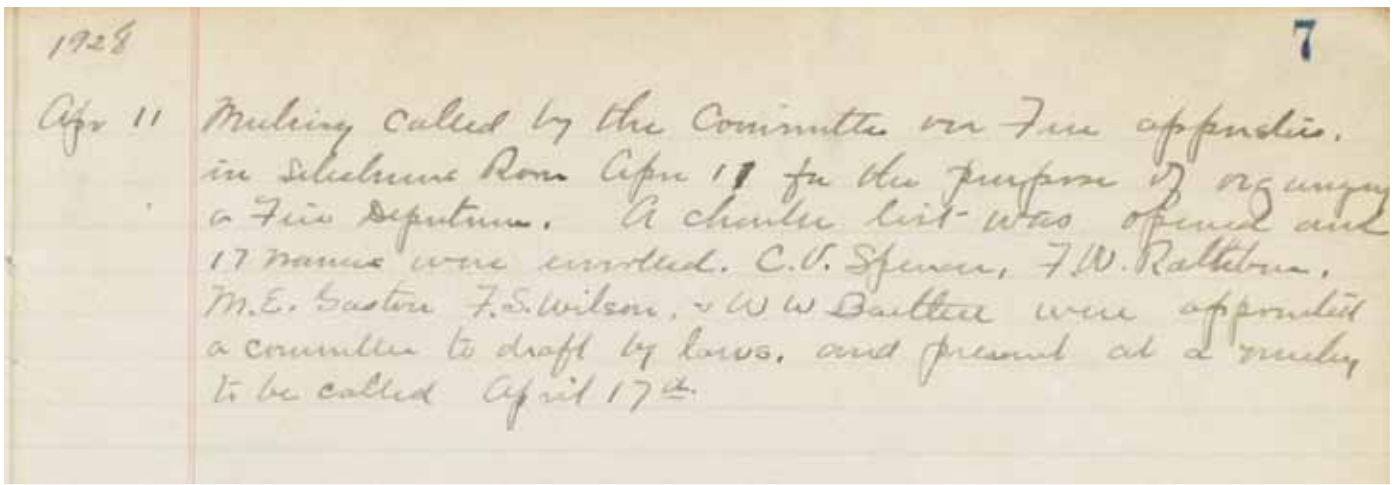 1928
7
Apr 11 Meeting called by the Committee on Fire apparatus.
in Selectmens Room Apr 11 for the purpose of organizing
a Fire Department. A charter list was opened and
17 names were enrolled. C.V. Spencer, F.W. Rathbun.
M.E. Gaston F.S. Wilson. & W W Bartlett were appointed
a committee to draft by laws. and present at a meeting
to be called April 17th.